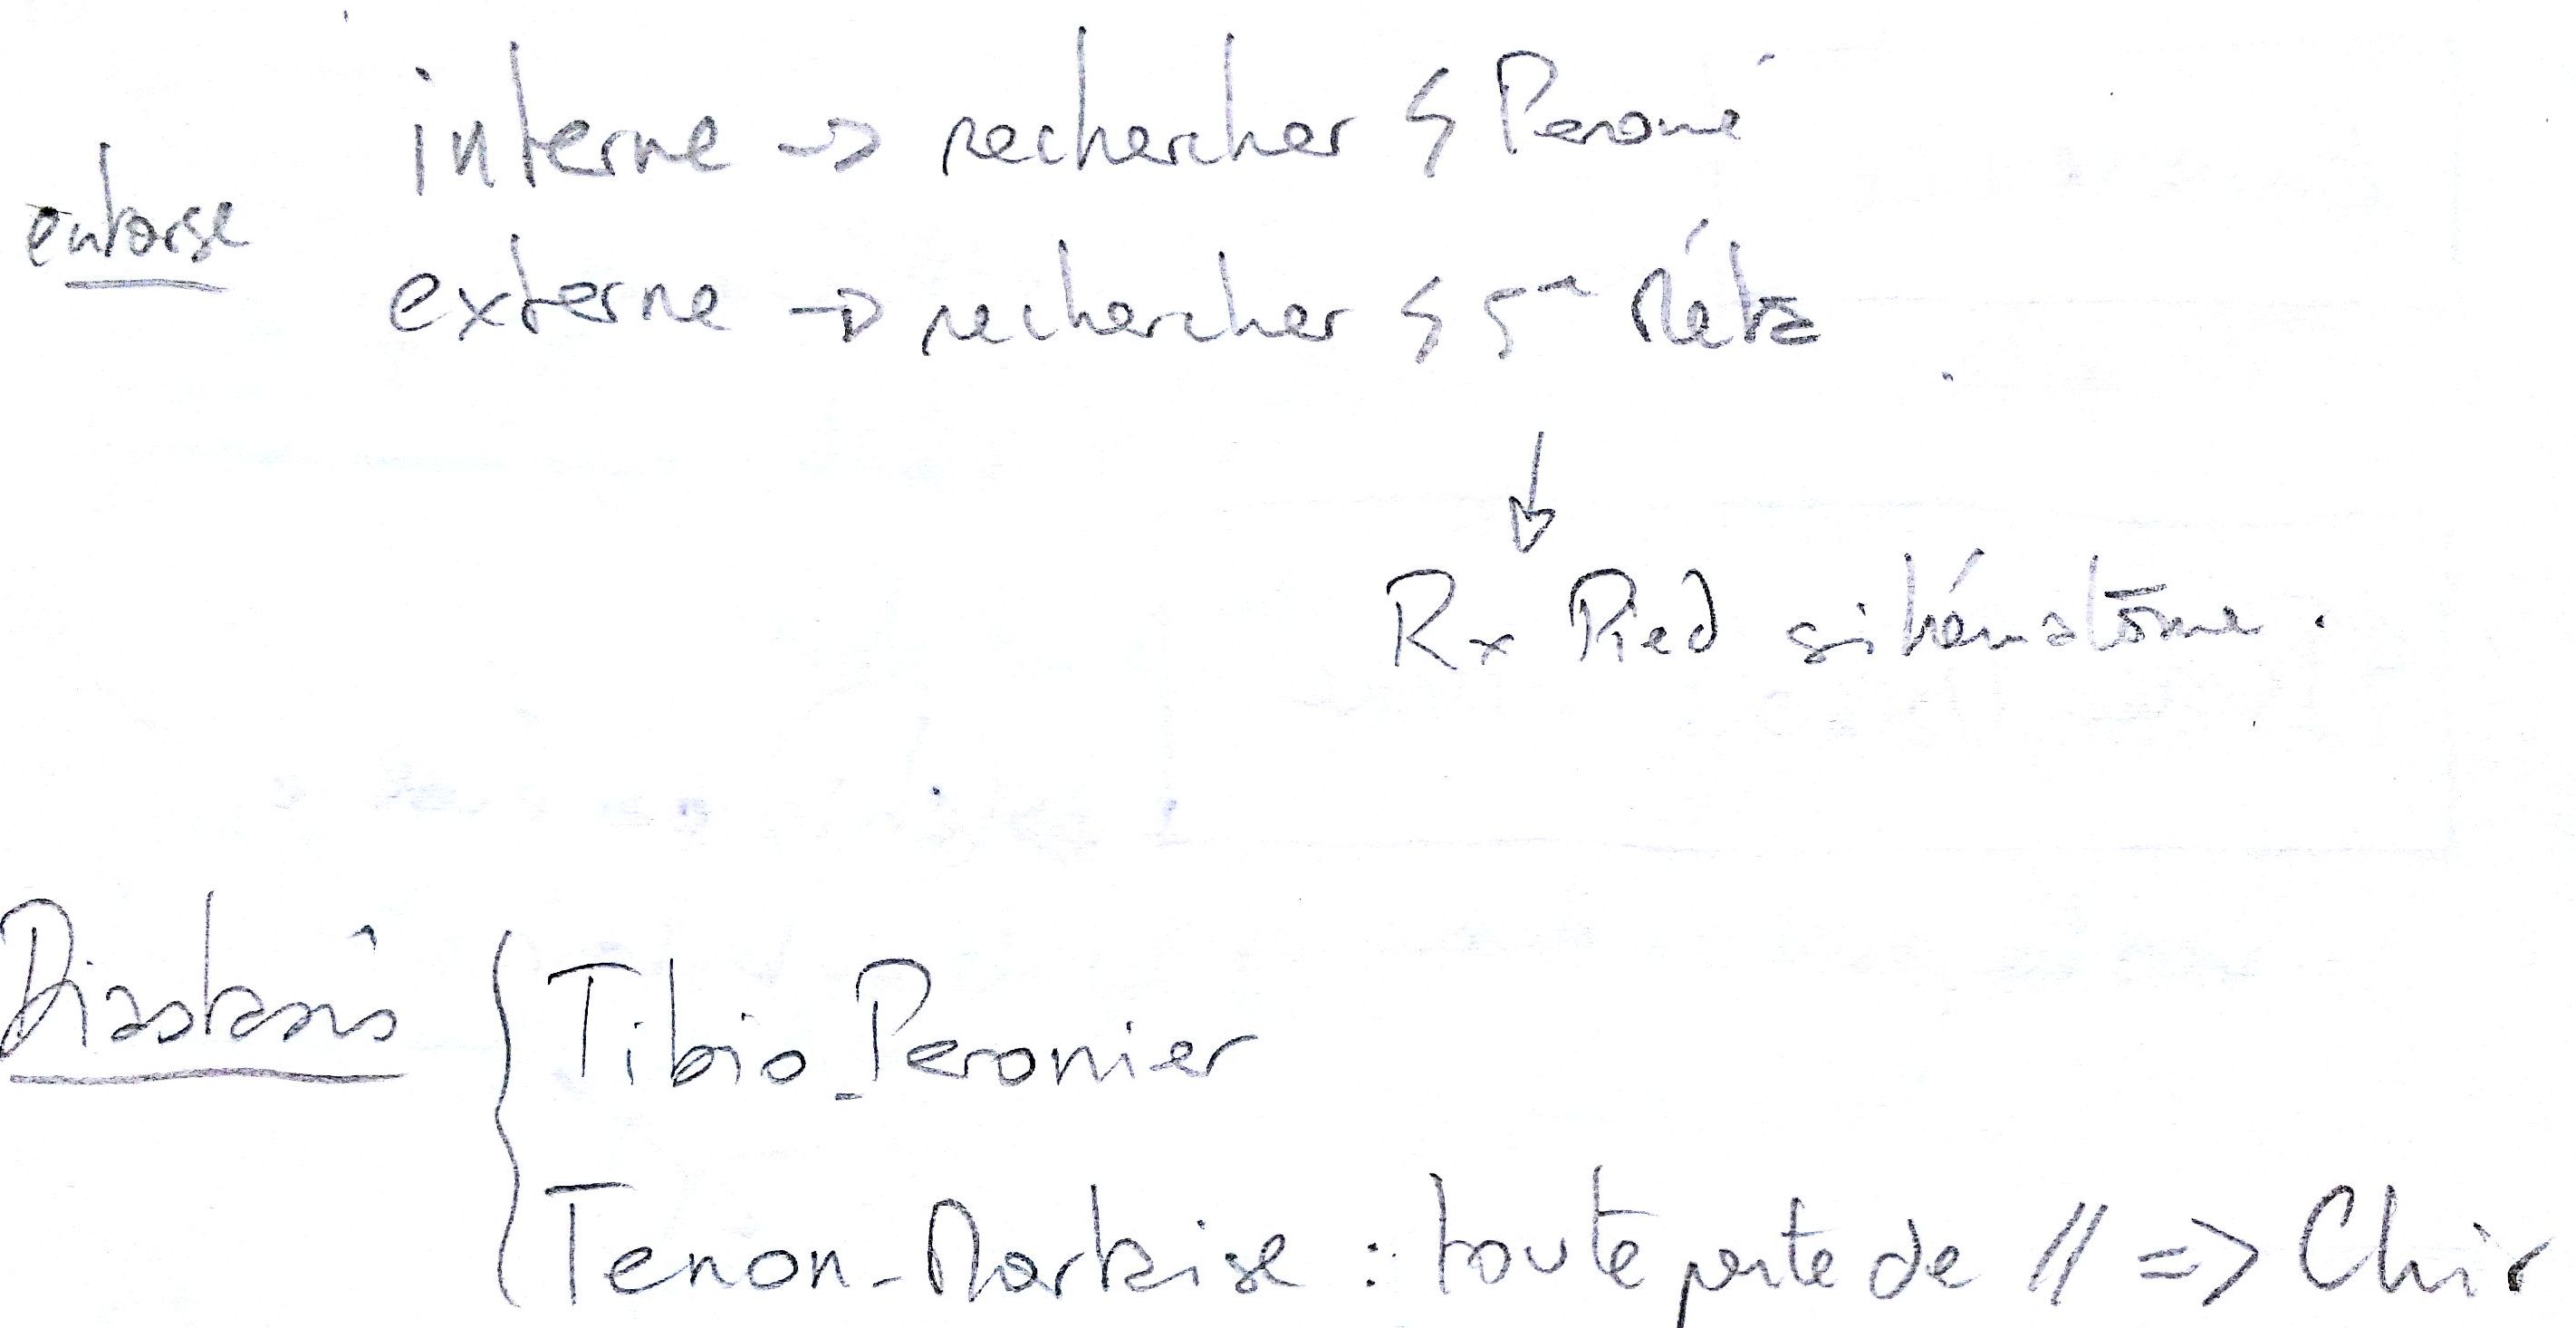 interne -> rechercher ϟ Peroné
entorse
externe -> rechercher ϟ 5e Méta
↓
Rx Pied si hématôme.
Diastasis { Tibio-Peronier
Tenon-Mortaise : toute perte de // => Chir